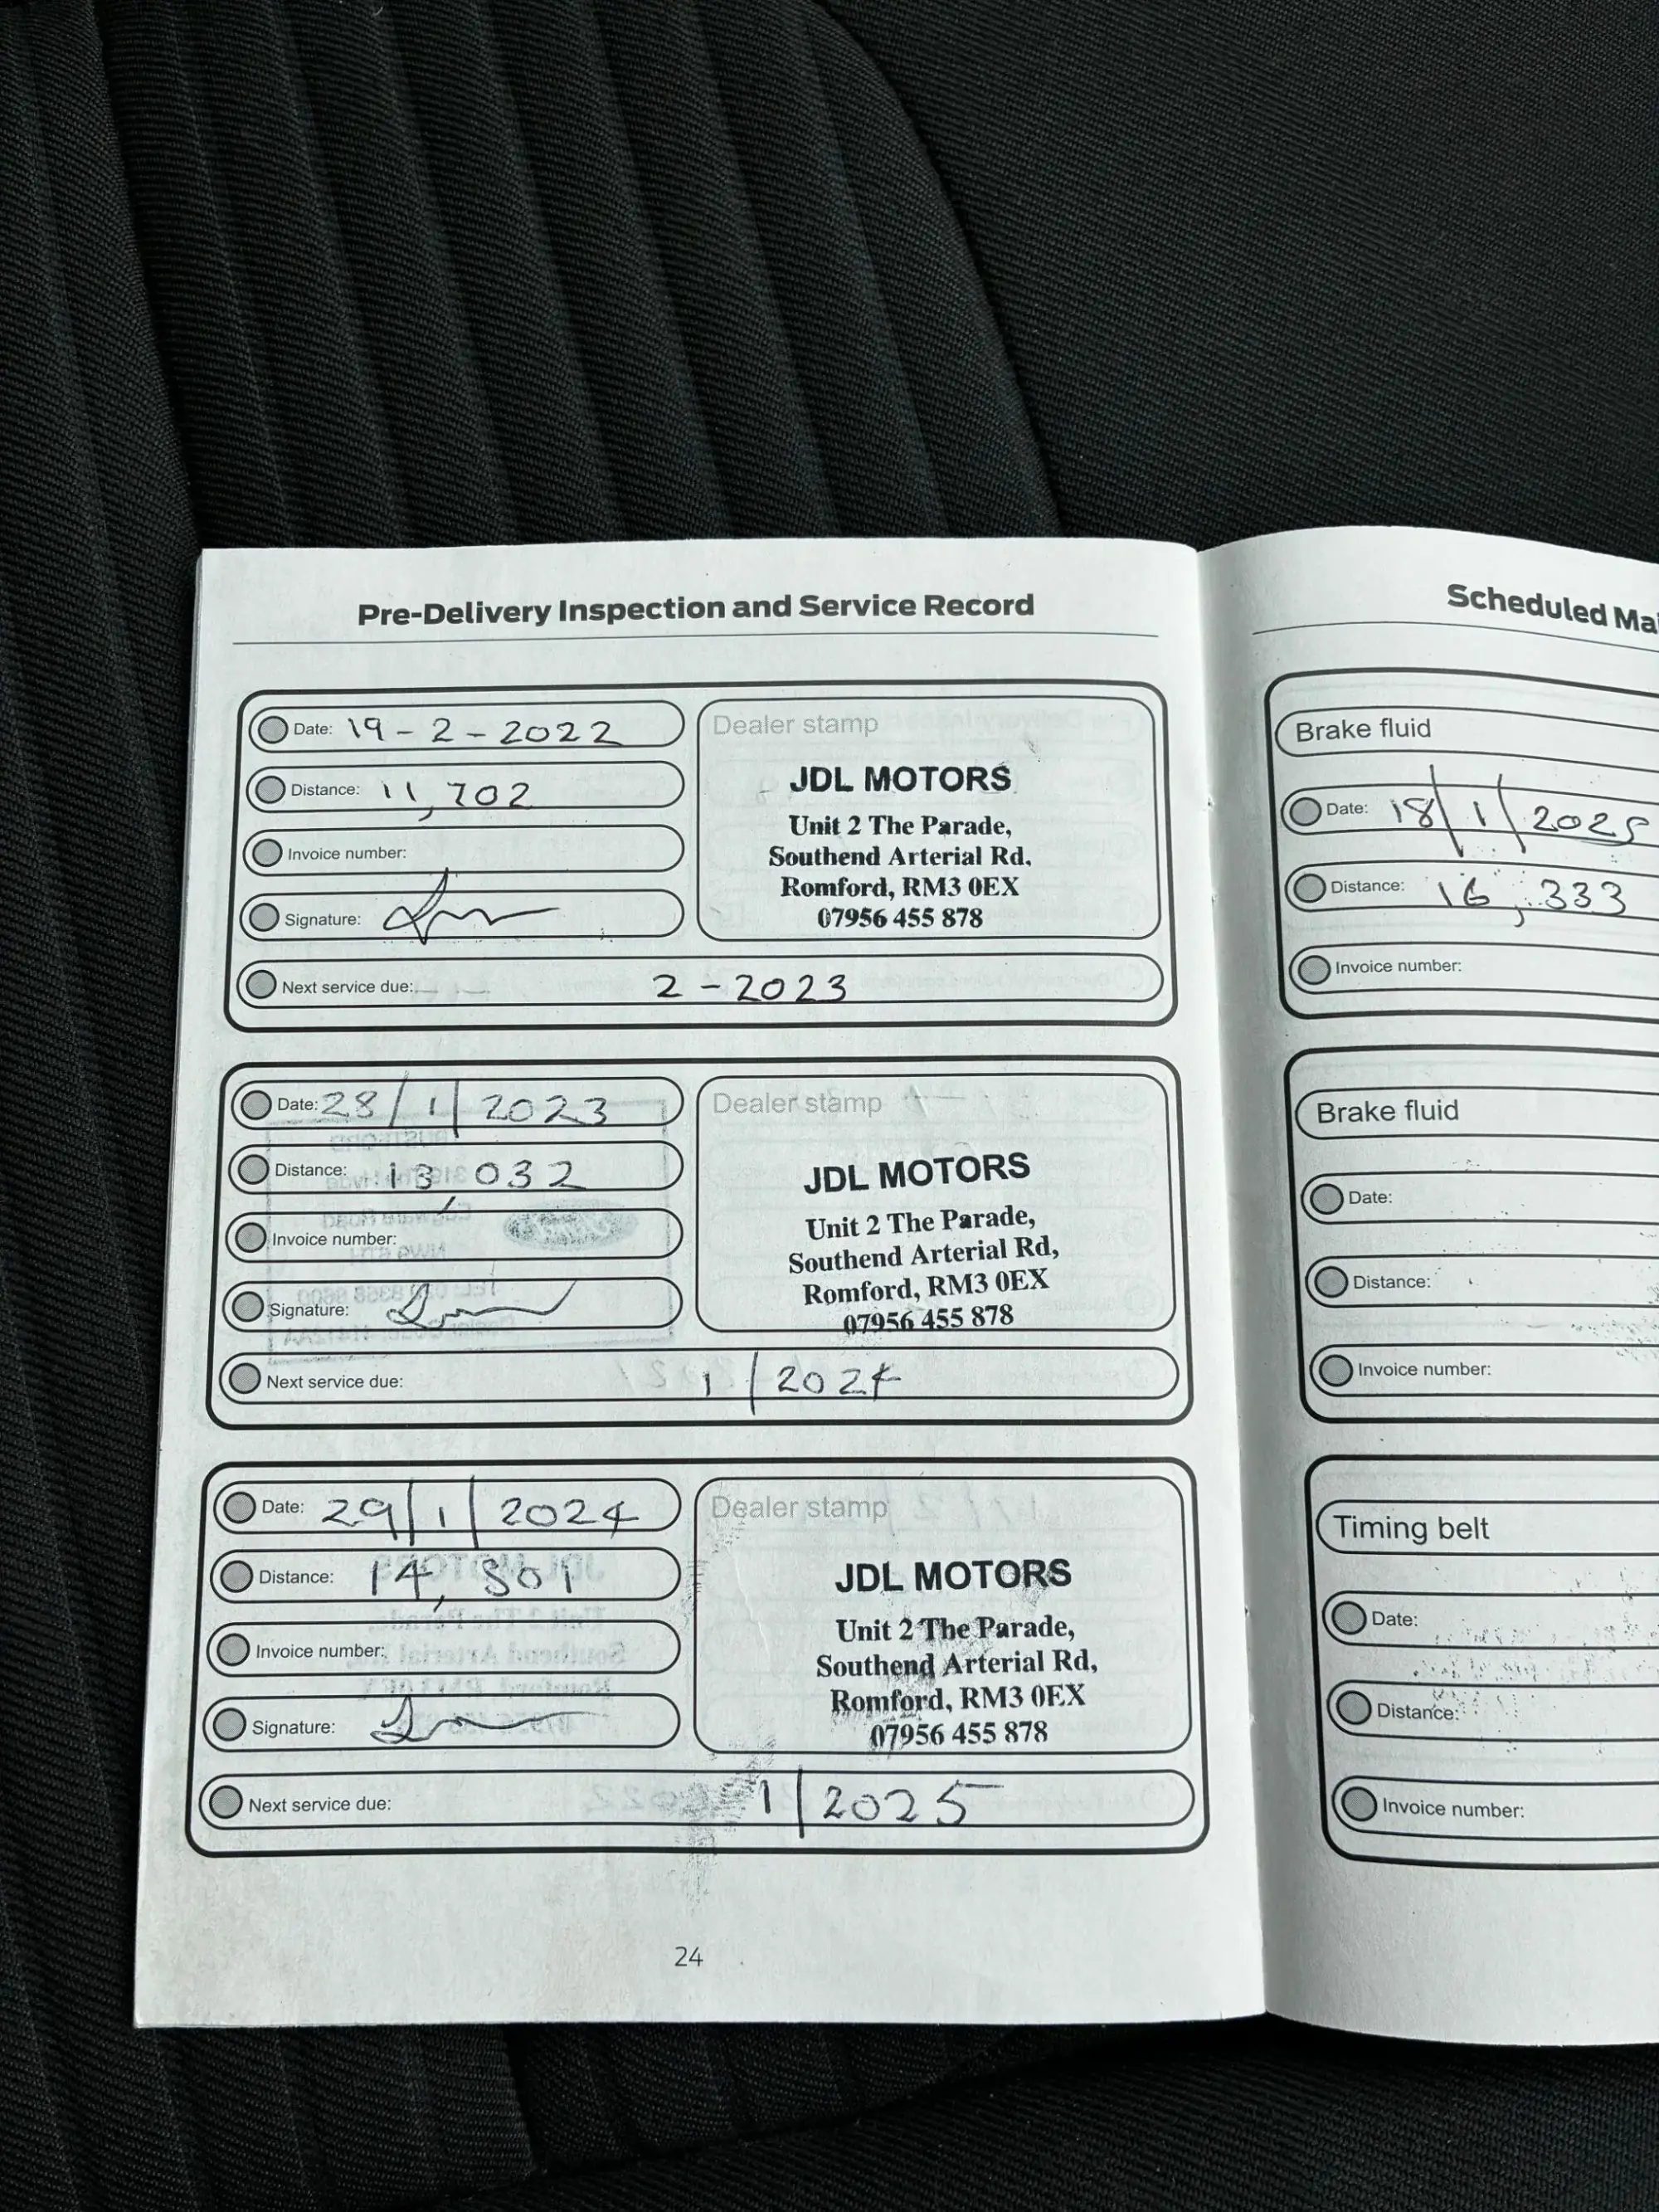 Pre-Delivery Inspection and Service Record
Date: 19-2-2022
Distance: 11,702
Invoice number:
Signature:
Next service due: 2-2023
Dealer stamp
JDL MOTORS
Unit 2 The Parade,
Southend Arterial Rd,
Romford, RM3 0EX
07956 455 878
Date: 28/1/2023
Distance: 13,032
Invoice number:
Signature:
Next service due: 1/2024
Dealer stamp
JDL MOTORS
Unit 2 The Parade,
Southend Arterial Rd,
Romford, RM3 0EX
07956 455 878
Date: 29/1/2024
Distance: 14,801
Invoice number:
Signature:
Next service due: 1/2025
Dealer stamp
JDL MOTORS
Unit 2 The Parade,
Southend Arterial Rd,
Romford, RM3 0EX
07956 455 878
24
Scheduled Ma
Brake fluid
Date: 18/1/2025
Distance: 16,333
Invoice number:
Brake fluid
Date:
Distance:
Invoice number:
Timing belt
Date:
Distance:
Invoice number: